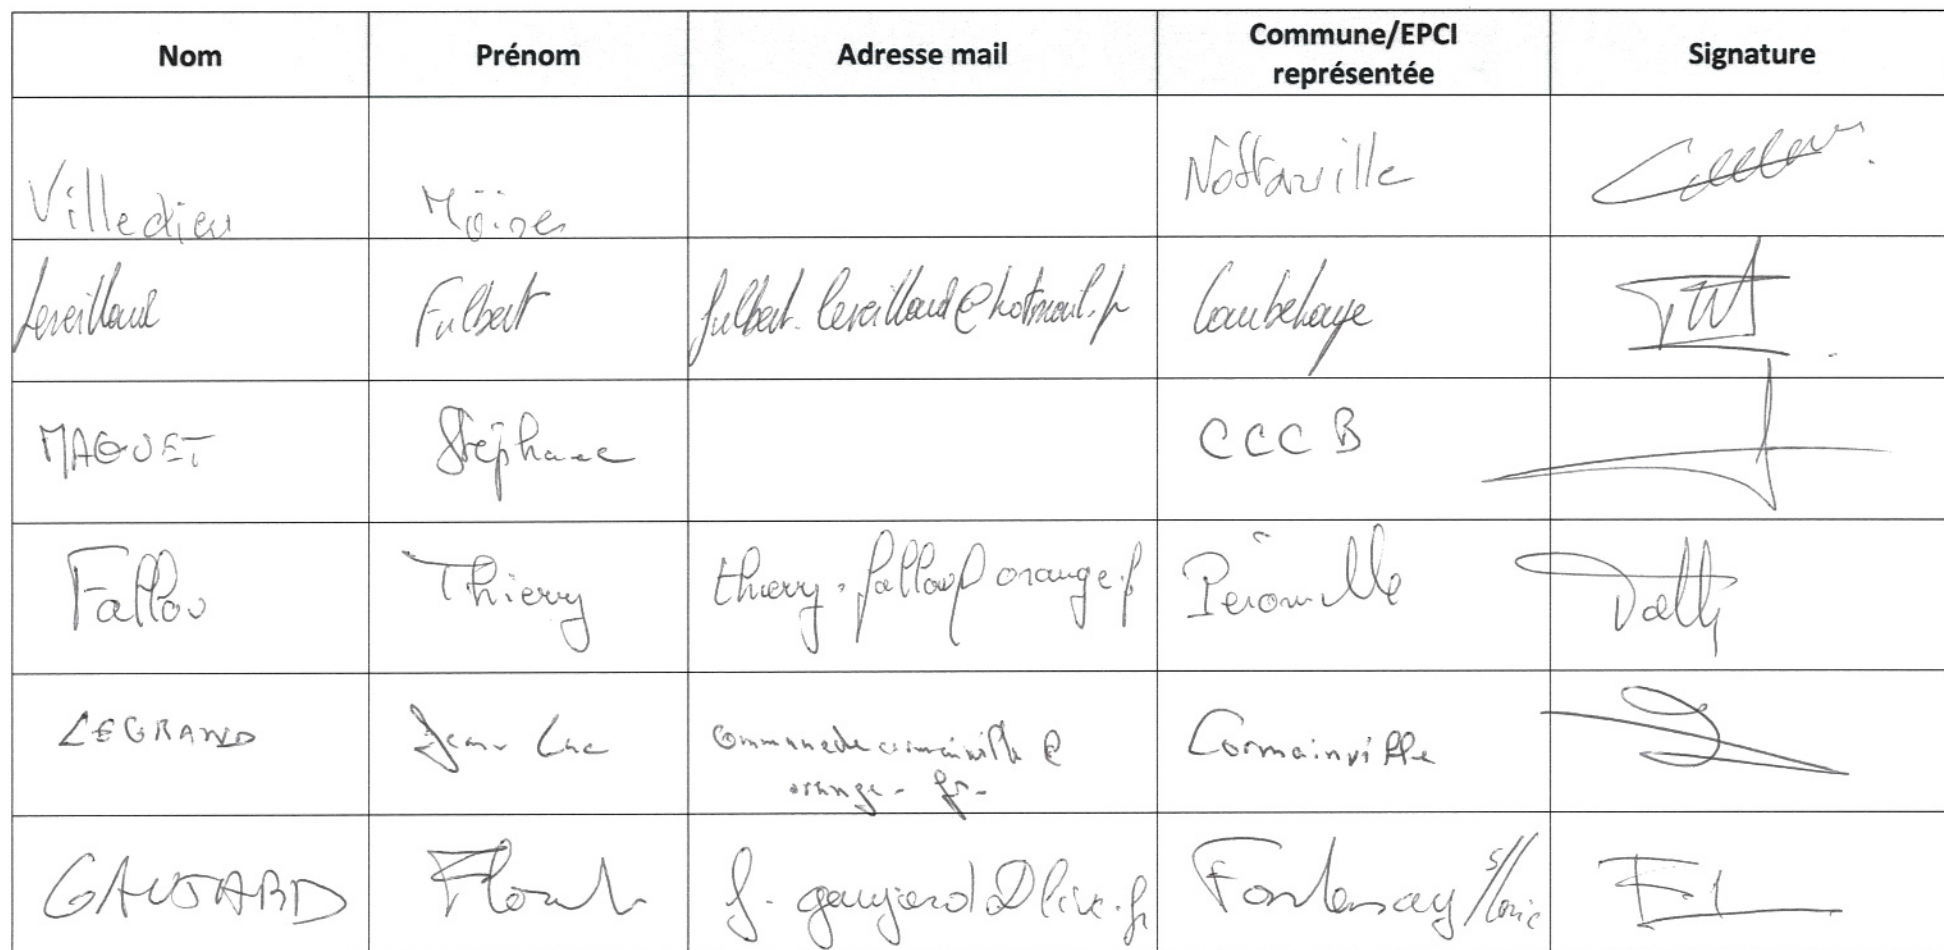 Nom Prénom Adresse mail Commune/EPCI représentée Signature
Villedieu Möise Nottonville
Leveillard Fulbert fulbert.leveillard@hotmail.fr Courbehaye
MAQUET Stéphane CCCB
Fallou Thierry thierry.fallou@orange.fr Péronville
LEGRAND Jean Luc communedecormainville@ Cormainville
orange.fr
GAUJARD f.gaujard@live.fr Fontenay s/Conie